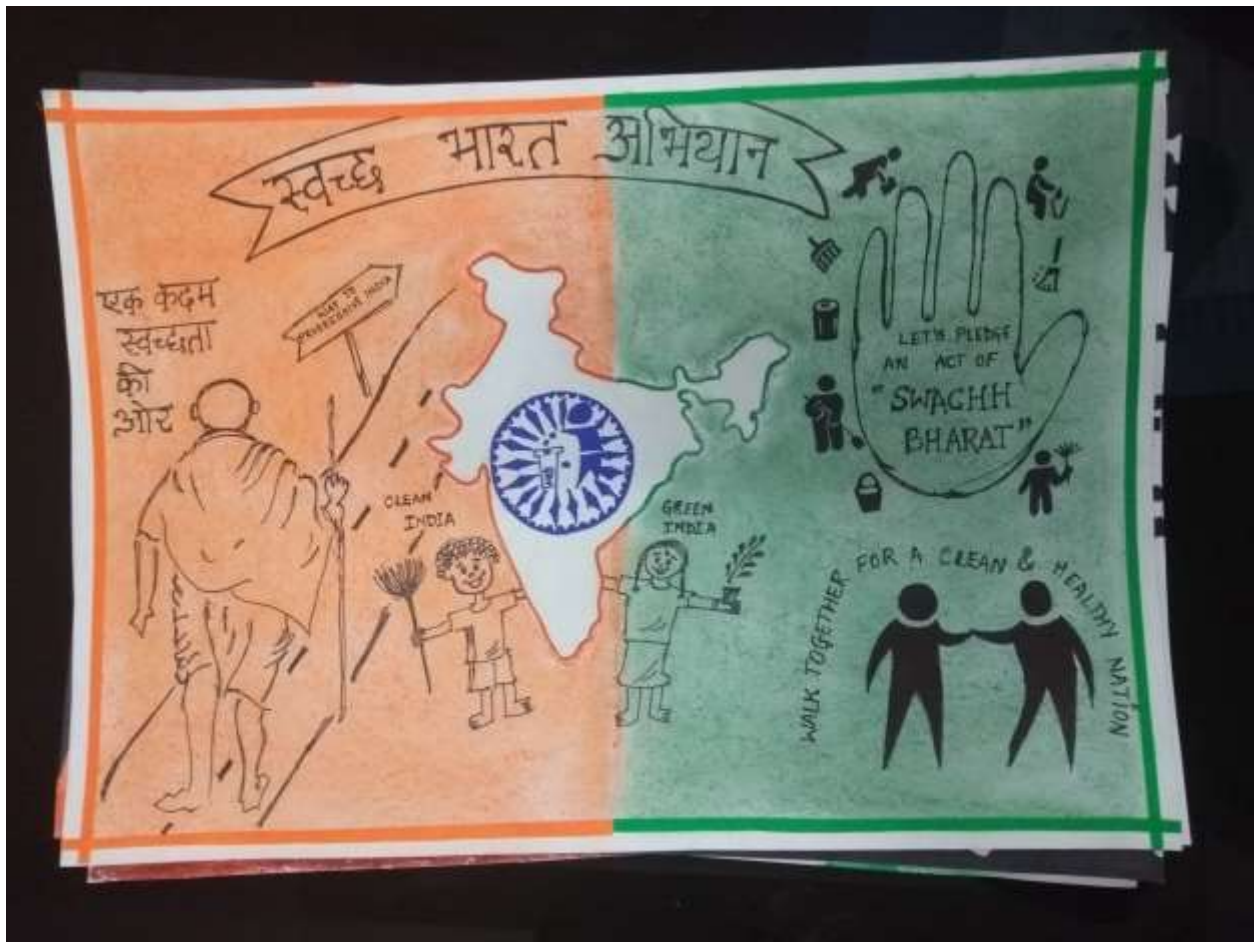 स्वच्छ भारत अभियान
एक कदम
स्वच्छता
की
ओर
WAY TO
PROGRESSIVE INDIA
CLEAN
INDIA
GREEN
INDIA
LET'S PLEDGE
AN ACT OF
"SWACHH
BHARAT"
WALK TOGETHER FOR A CLEAN & HEALTHY NATION